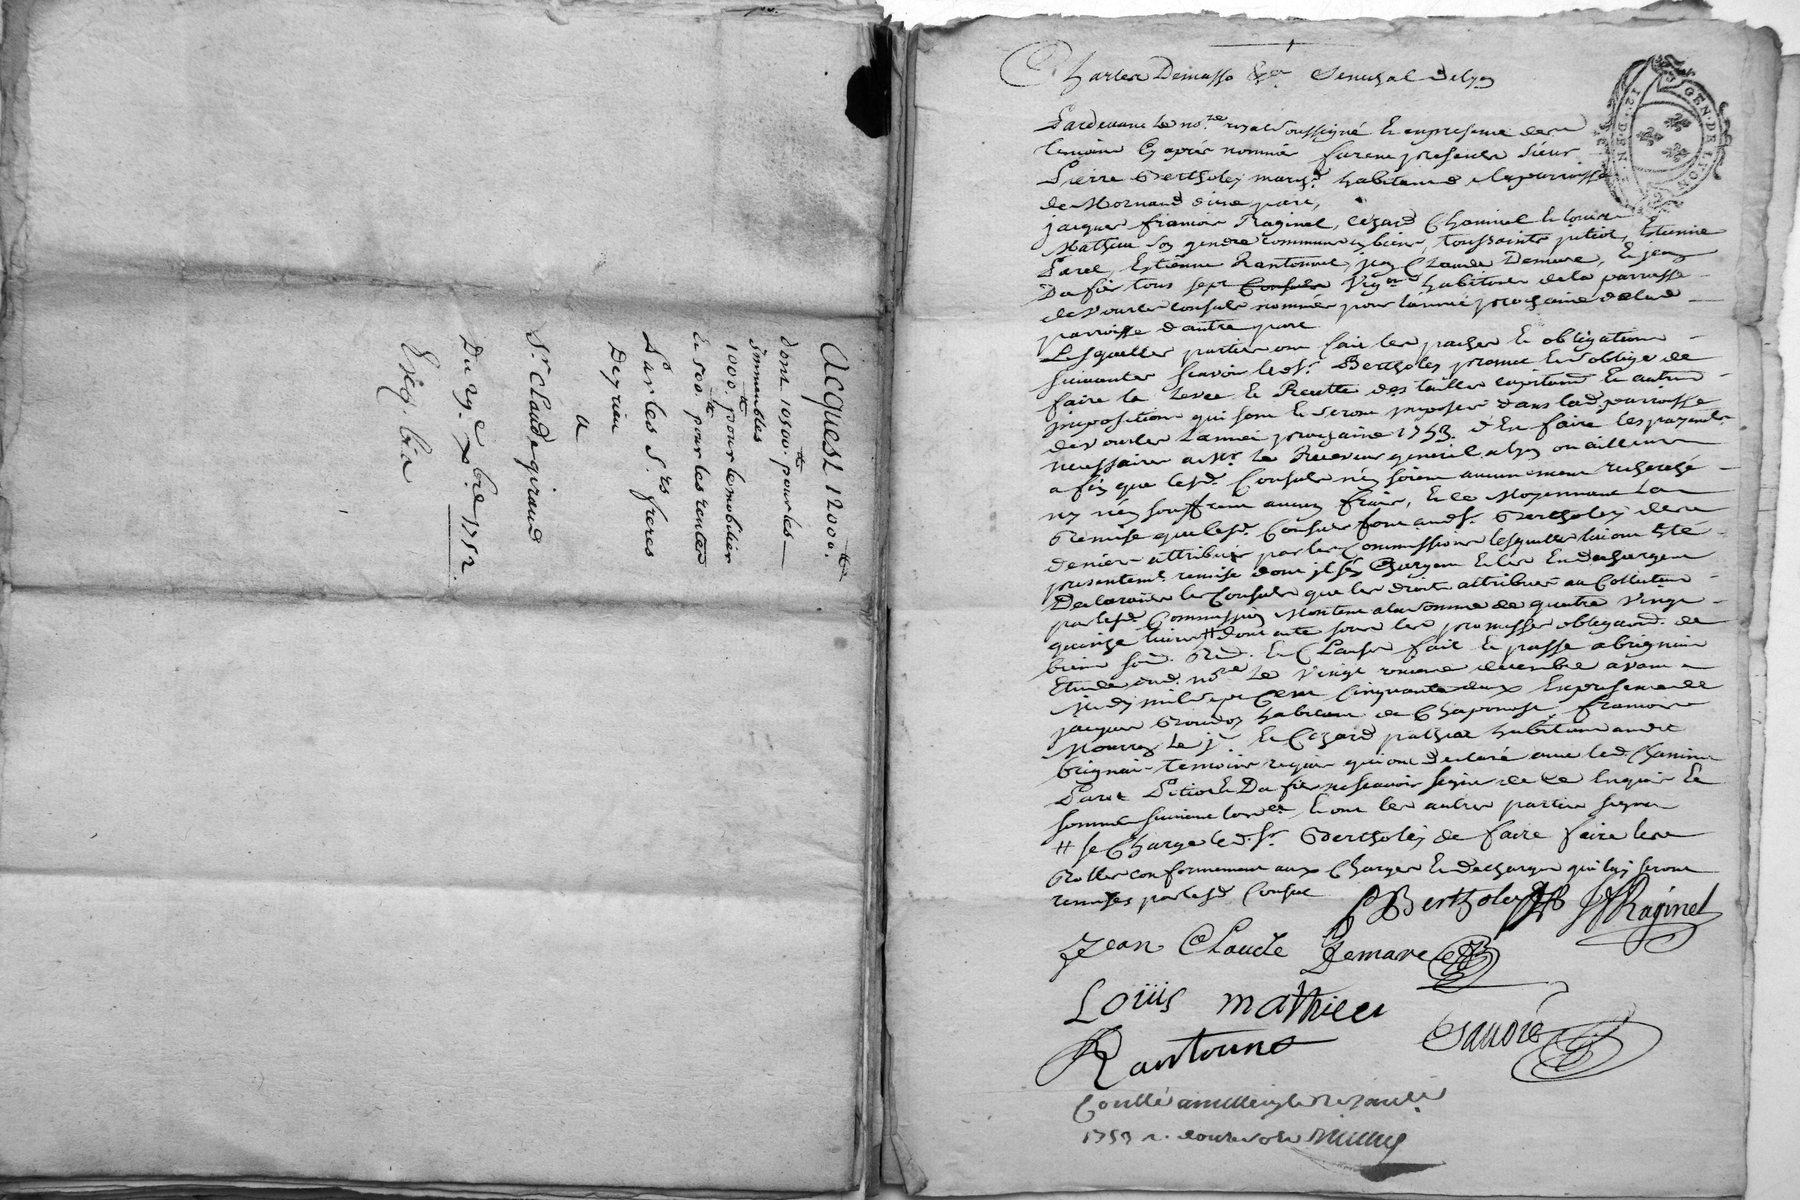 Acquest 12000.tt
dont 10500.tt pour les
Immeubles
1000.tt pour le mobilier
et 500.tt pour les rentes
Par les S.rs freres
Deyrieu
a
S.r Claude giraud
Du 29.e xbre 1752.
Exeq. bia
Charles Demasso &a Senechal delyon
GEN·DE·LYON
12·D·E·N·
Pardevant le no.re royal soussigné Et en presence des
temoins Cy apres nommés furent presents Sieur
Pierre Bertholey march.d habitant
de Mornand d'une part,
jacques francois Raginel, Cezard Chanine et louis
Mathieu son gendre communs en biens, toussaints pitiot, Estienne
Parel, Estienne Rantonnet, jean Claude Demare, Et jean
Dafier tous sept Consuls Vig.ons habitans de la parroisse
de Vourles Consuls nommés pour l'année prochaine de lad.
parroisse d'autre part
Lesquelles parties ont fait les pactes Et obligations
suivantes scavoir led. S.r Bertholey promet Et s'oblige de
faire la levée Et Recette des tailles capitation Et autres
impositions qui sont Et seront imposées dans lad. parroisse
de Vourles L'année prochaine 1753. d'En faire les payements
necessaires a M.r le Receveur general a lyon ou ailleurs
afin que lesd. Consuls n'en soient aucunement recherchés
ny n'en souffrent aucuns frais, Et ce Moyennant La
Remise que lesd. Consuls font aud. S.r Bertholey des
deniers attribués par les Commissions lesquelles lui ont Eté
presentement remises dont il s'En Charge Et les En decharge
Declarants les Consuls que les droits attribués au Collecteur
par lesd. Commissions Montent a la somme de quatre Vingt
quinze livres # dont acte sous les promesses obligations de
biens soum. Ren. Et Clauses fait Et passé a brignais
Etude dud. no.re Le Vingt decembre avant
midy mil sept Cent Cinquante deux En presence de
jacques habitant de Chaponost francois
Nourry Le j.e Et Cezard habitant aud.t
brignais temoins requis qui ont declaré avec led. Chanine
Parel Pitiot Et Dafier ne scavoir signer de ce Enquis Et
sommés suivant lord.ce Et ont les autres parties signé
# se Charge led. S.r Bertholey de faire faire les
Rolles conformement aux Charges Et decharges qui luy seront
remises par lesd. Consuls
Bertholey JF Raginel
Jean Claude Demare
Loüis mathieu
Rantonnet
Conllé a
1753 R. douze sols